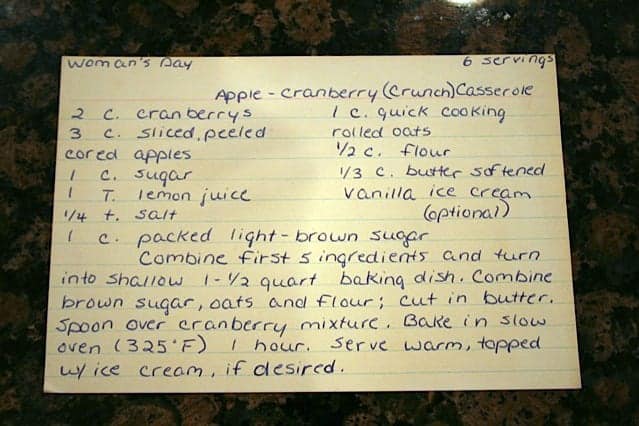 Woman's Day 6 servings
Apple - Cranberry (Crunch) Casserole
2 c. cranberrys
3 c. sliced, peeled
cored apples
1 c. sugar
1 T. lemon juice
1/4 t. salt
1 c. packed light-brown sugar
1 c. quick cooking
rolled oats
1/2 c. flour
1/3 c. butter softened
vanilla ice cream
(optional)
Combine first 5 ingredients and turn
into shallow 1-1/2 quart baking dish. Combine
brown sugar, oats and flour; cut in butter.
Spoon over cranberry mixture. Bake in slow
oven (325°F) 1 hour. Serve warm, topped
w/ ice cream, if desired.